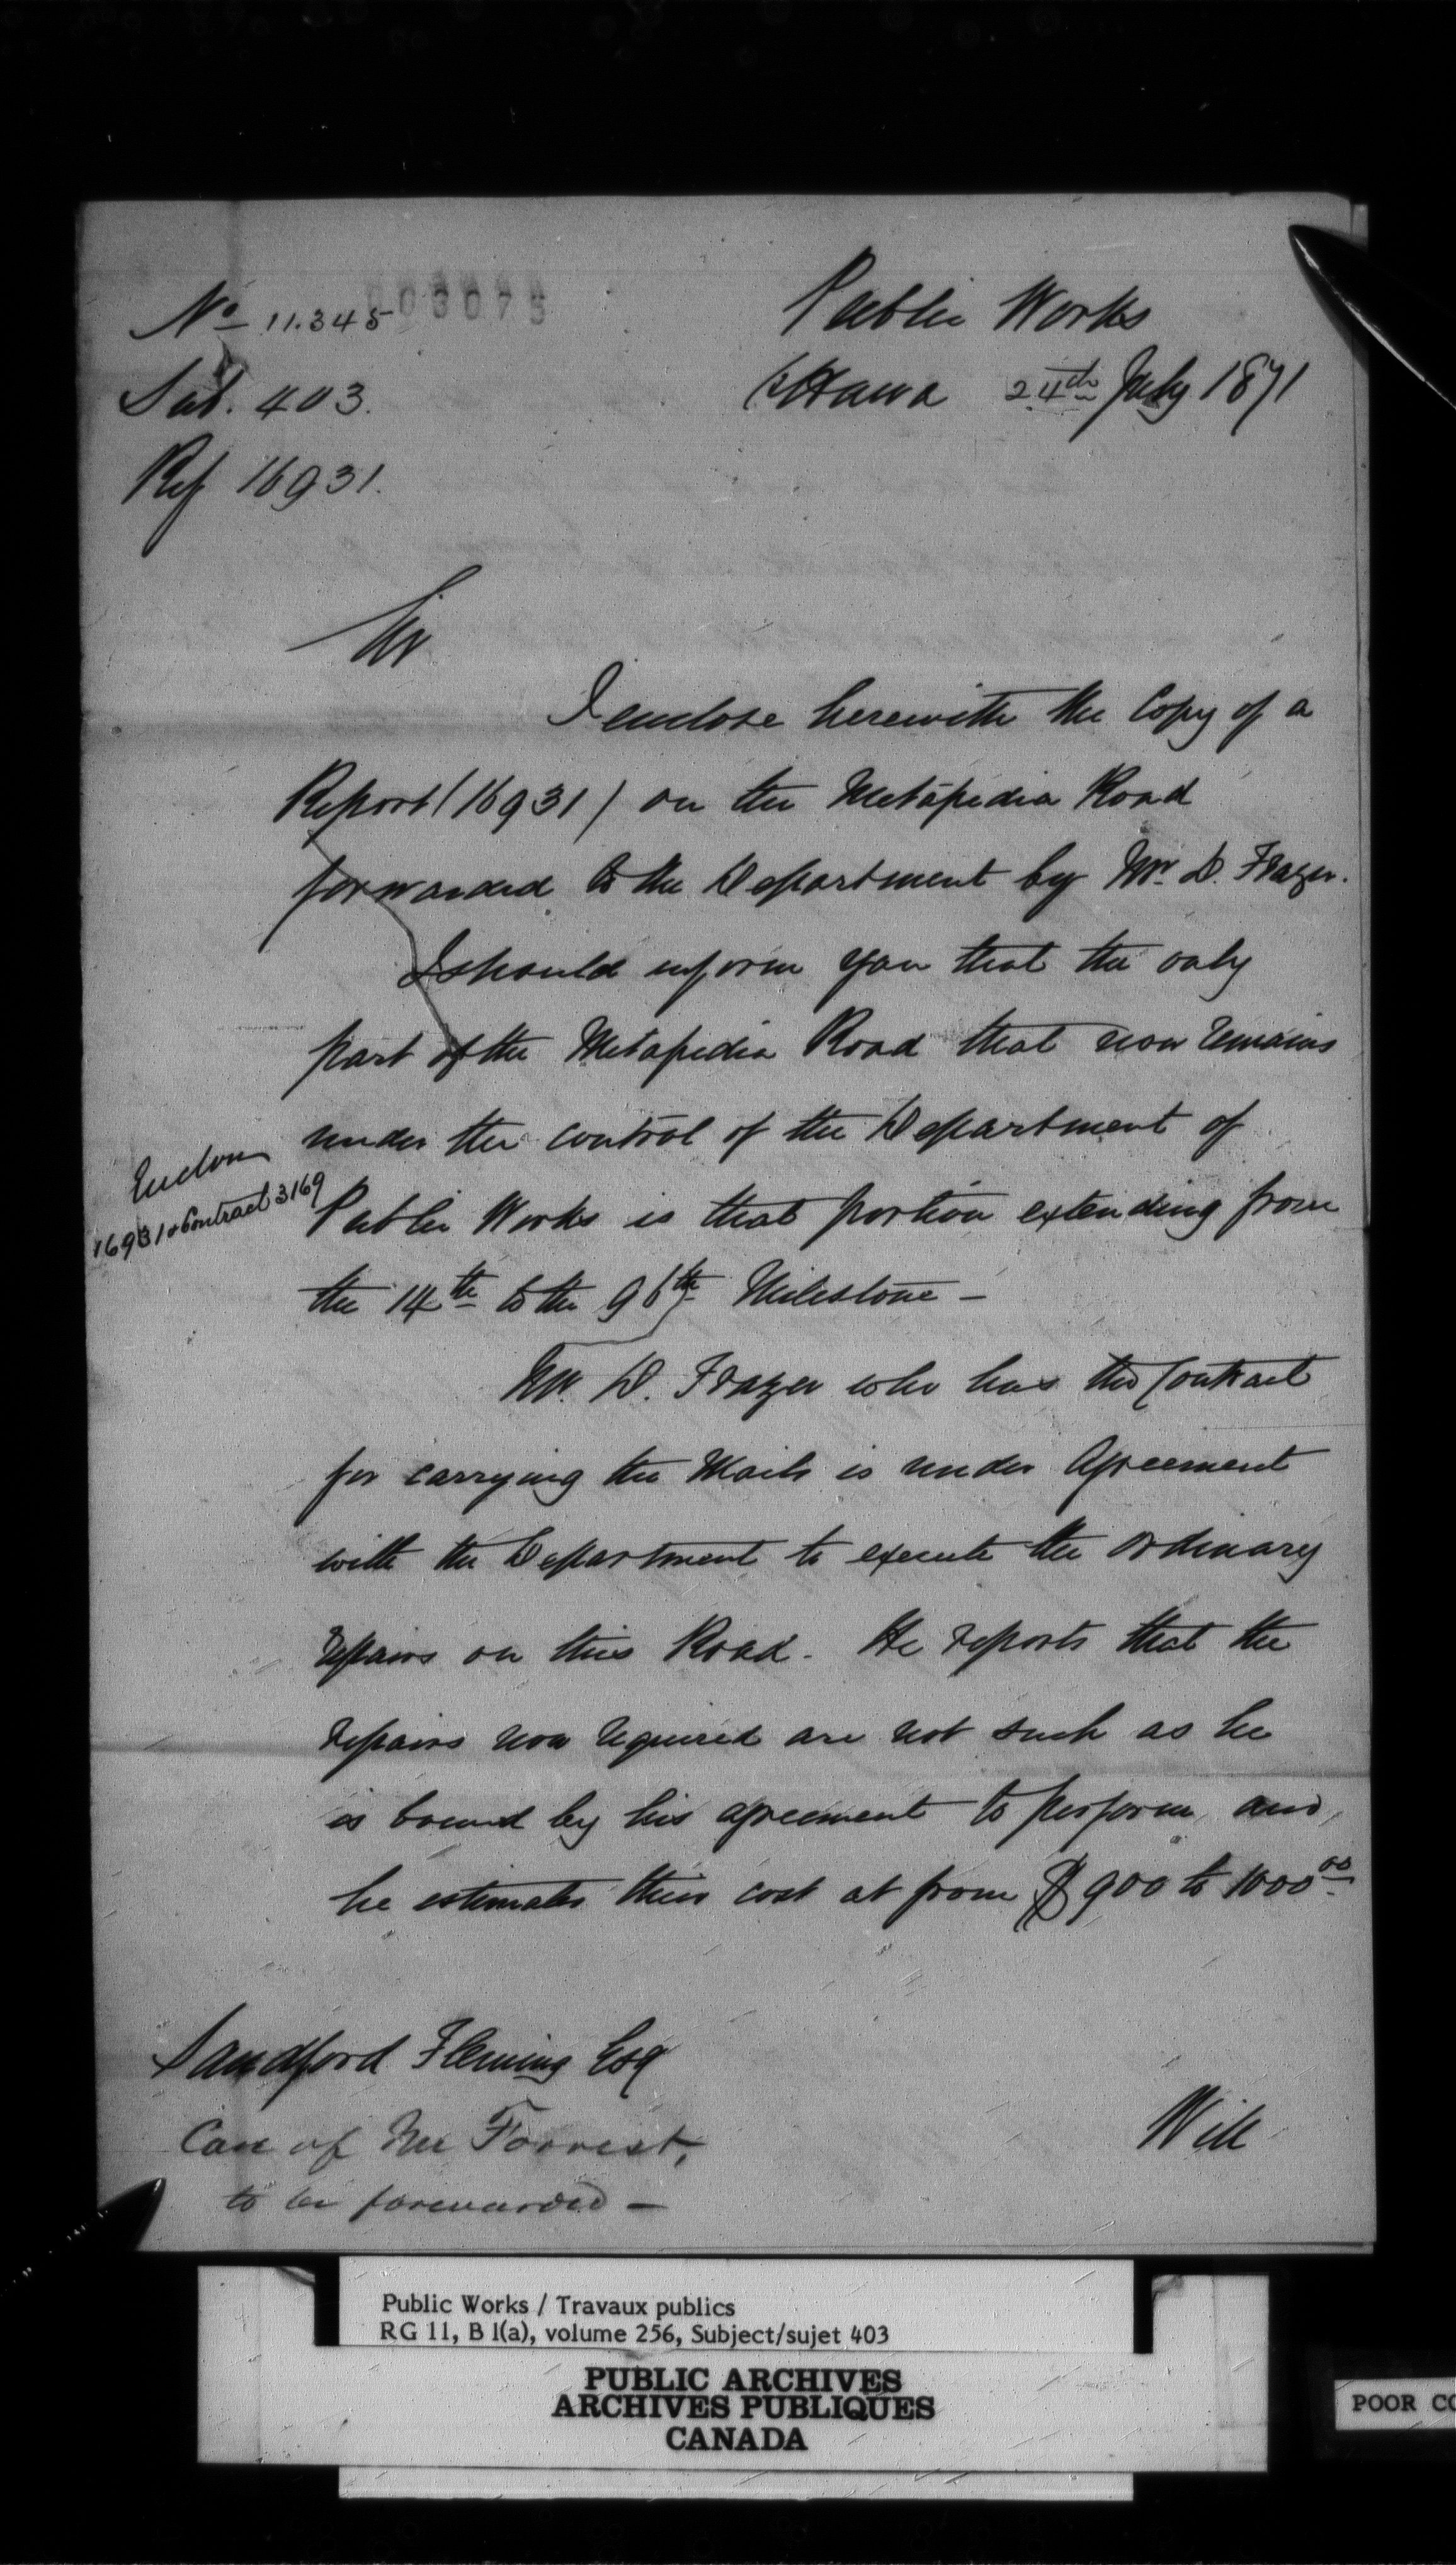 No 11.345
003075
Sub. 403.
Ref 16931.
Public Works
Ottawa 24th July 1871
Sir
I enclose herewith the Copy of a
Report (16931) on the Metapedia Road
forwarded to the Department by Mr. D. Frazer.
I should inform you that the only
part of the Metapedia Road that now remains
under the control of the Department of
Public Works is that portion extending from
the 14th to the 96th Milestone —
Enclose
16931 & Contract 3169
Mr. D. Frazer who has the Contract
for carrying the Mails is under Agreement
with the Department to execute the ordinary
repairs on this Road. He reports that the
repairs now required are not such as he
is bound by his agreement to perform, and,
he estimates their cost at from $900 to 1000.00
Sandford Fleming Esq
Care of Mr Forrest,
to be forwarded —
Will
Public Works / Travaux publics
RG 11, B 1(a), volume 256, Subject/sujet 403
PUBLIC ARCHIVES
ARCHIVES PUBLIQUES
CANADA
POOR CO